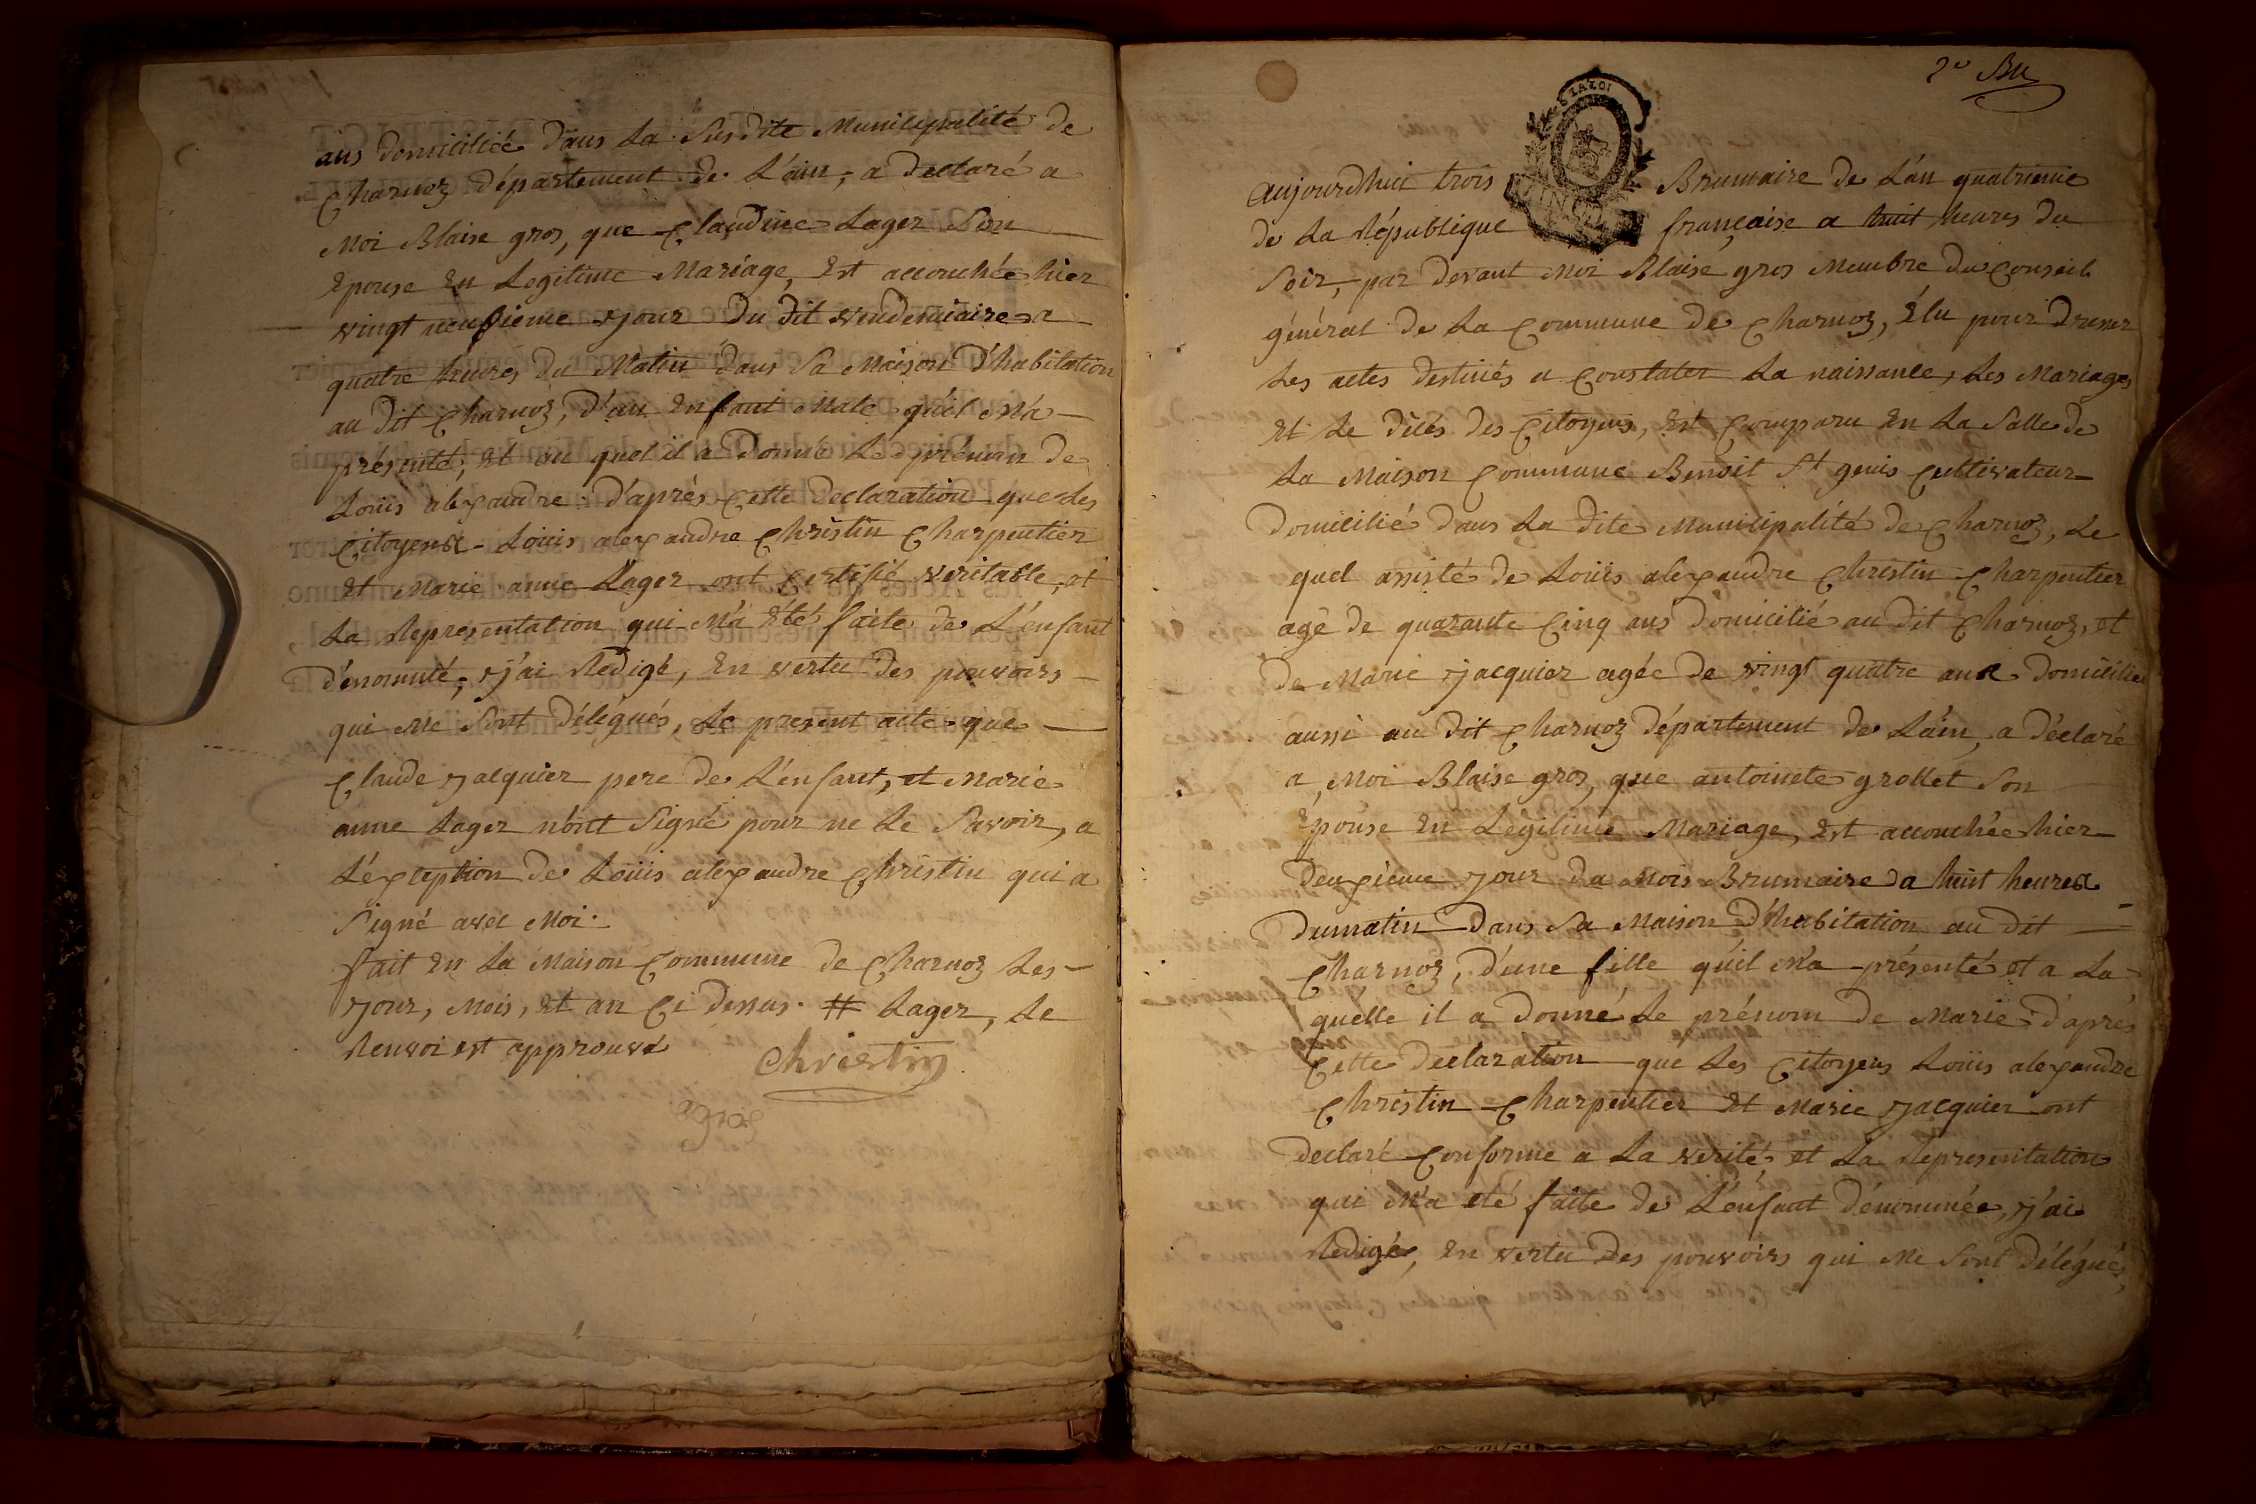 ans domiciliée dans La Susdite Municipalité de
Charnoz département de L'ain, a declaré a
Moi Blaise gros, que Claudine Lager Son
Epouse En Legitime Mariage, Est accouchée hier
vingt neufieme jour Du dit vendemiaire a
quatre heures Du Matin dans Sa Maison D'habitation
au dit Charnoz, D'un Enfant Male qu'il M'a
présenté, Et au quel il a Donné Le prénom de
Louis alexandre : D'après Cette declaration que Les
Citoyens Louis alexandre Christin Charpentier
Et Marie anne Lager ont Certifié veritable, et
La Représentation qui M'a Eté faite de L'enfant
dénommé, j'ai Redigé, En vertu Des pouvoirs
qui Me Sont Délégués, Le present acte que
Claude jacquier pere de L'enfant, et Marie
anne Lager n'ont Signé pour ne Le Savoir, a
L'éxception de Loüis alexandre Christin qui a
Signé avec Moi.
fait En La Maison Commune de Charnoz Les
jour, Mois, Et an Ci dessus. # Lager, Le
Renvoi est approuvé
Christin
gros
2e
aujourdhui trois Brumaire de L'an quatrieme
de La République française a huit heures du
Soir, par devant Moi Blaise gros Membre Du Conseil
général de La Commune de Charnoz, Élu pour Dresser
Les actes destinés a Constater La naissance, Les Mariages
Et Le décès des Citoyens, Est Comparu En La Salle de
La Maison Commune Benoit St genis Cultivateur
Domicilié dans La dite Municipalité de Charnoz, Le
quel assisté de Loüis alexandre Christin Charpentier
agé de quarante Cinq ans Domicilié au dit Charnoz, et
De Marie jacquier agée de vingt quatre ans domiciliée
aussi au dit Charnoz département de L'ain, a déclaré
a Moi Blaise gros, que antoinete grollet Son
Épouse En Légitime Mariage, Est accouchée hier
deuxième jour Du Mois Brumaire a huit heures
Du matin Dans Sa Maison D'habitation au dit
Charnoz, D'une fille qu'il M'a présenté et a La
quelle il a Donné Le prénom de Marie : D'après
Cette declaration que Les Citoyens Loüis alexandre
Christin Charpentier Et Marie jacquier ont
declaré Conforme a La verité et La Représentation
qui M'a eté faite de L'enfant dénommée, j'ai
Redigé, En vertu Des pouvoirs qui Me Sont Délégués,